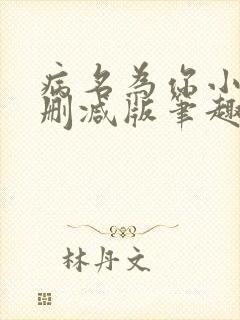 病名为你小
删减版笔趣
林丹文